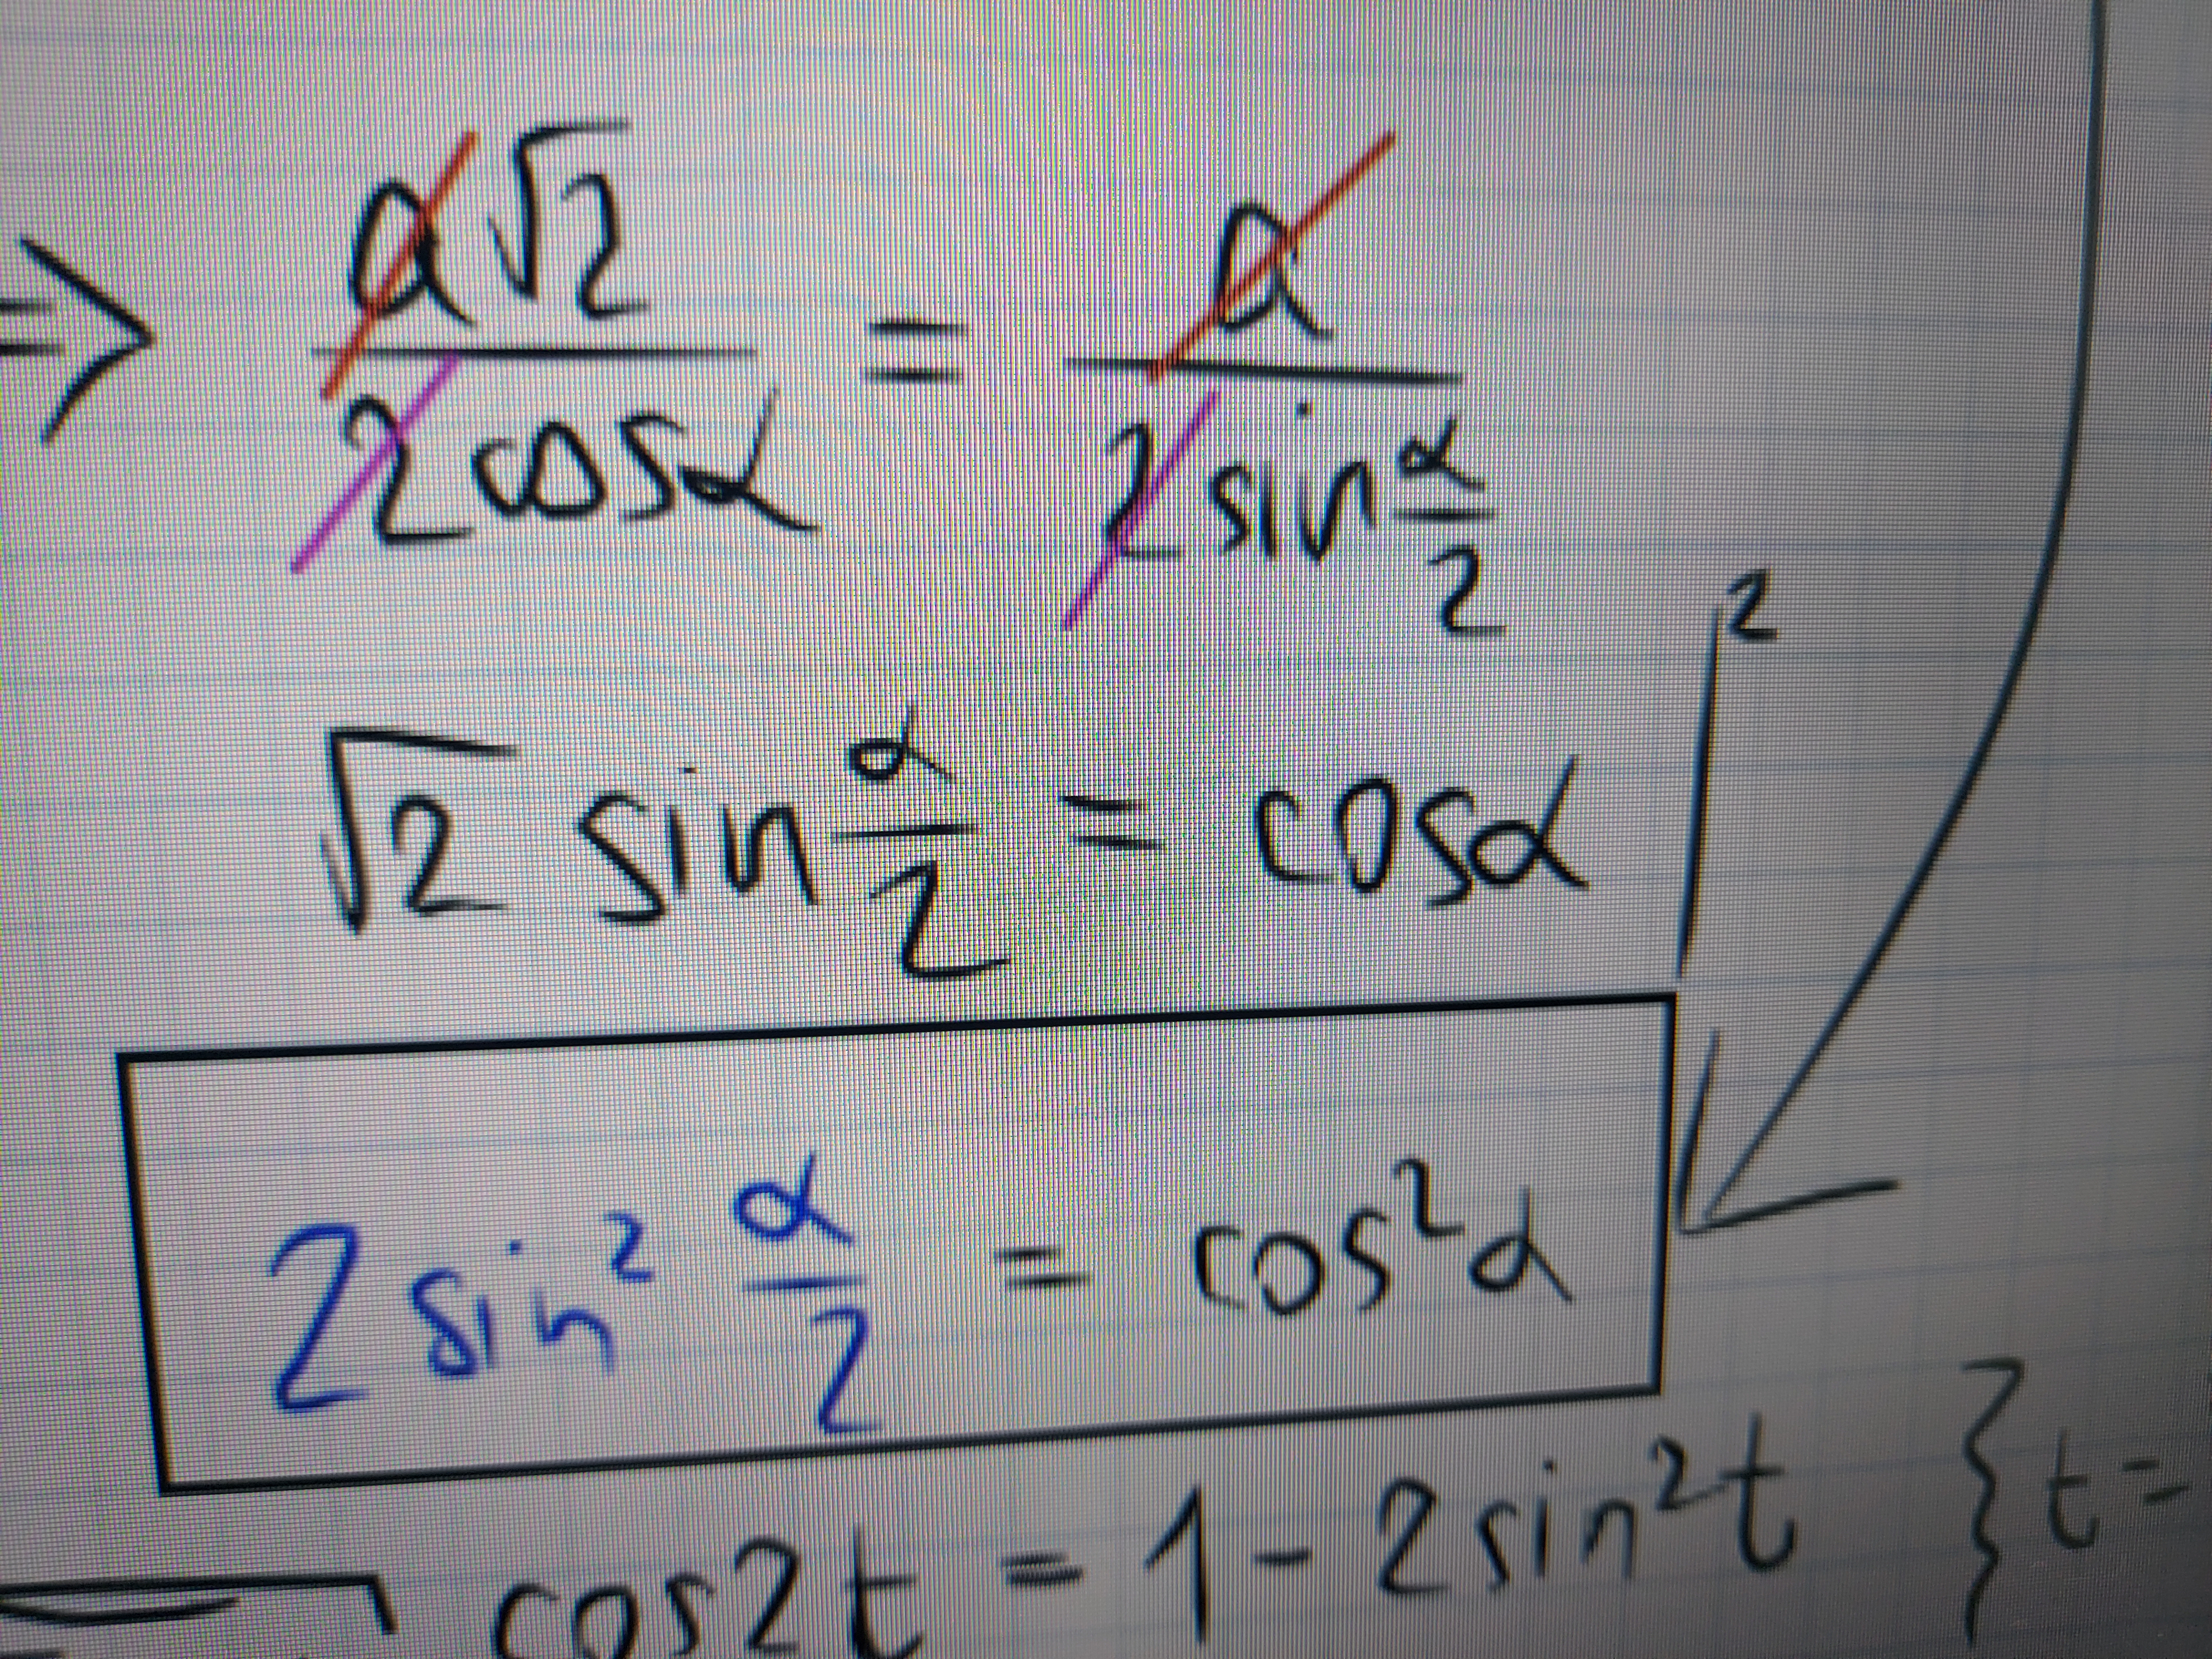 ⇒ a√2 / 2cosα = a / 2sin α/2
√2 sin α/2 = cosα |²
2sin² α/2 = cos²α
cos2t = 1 - 2sin²t } t =